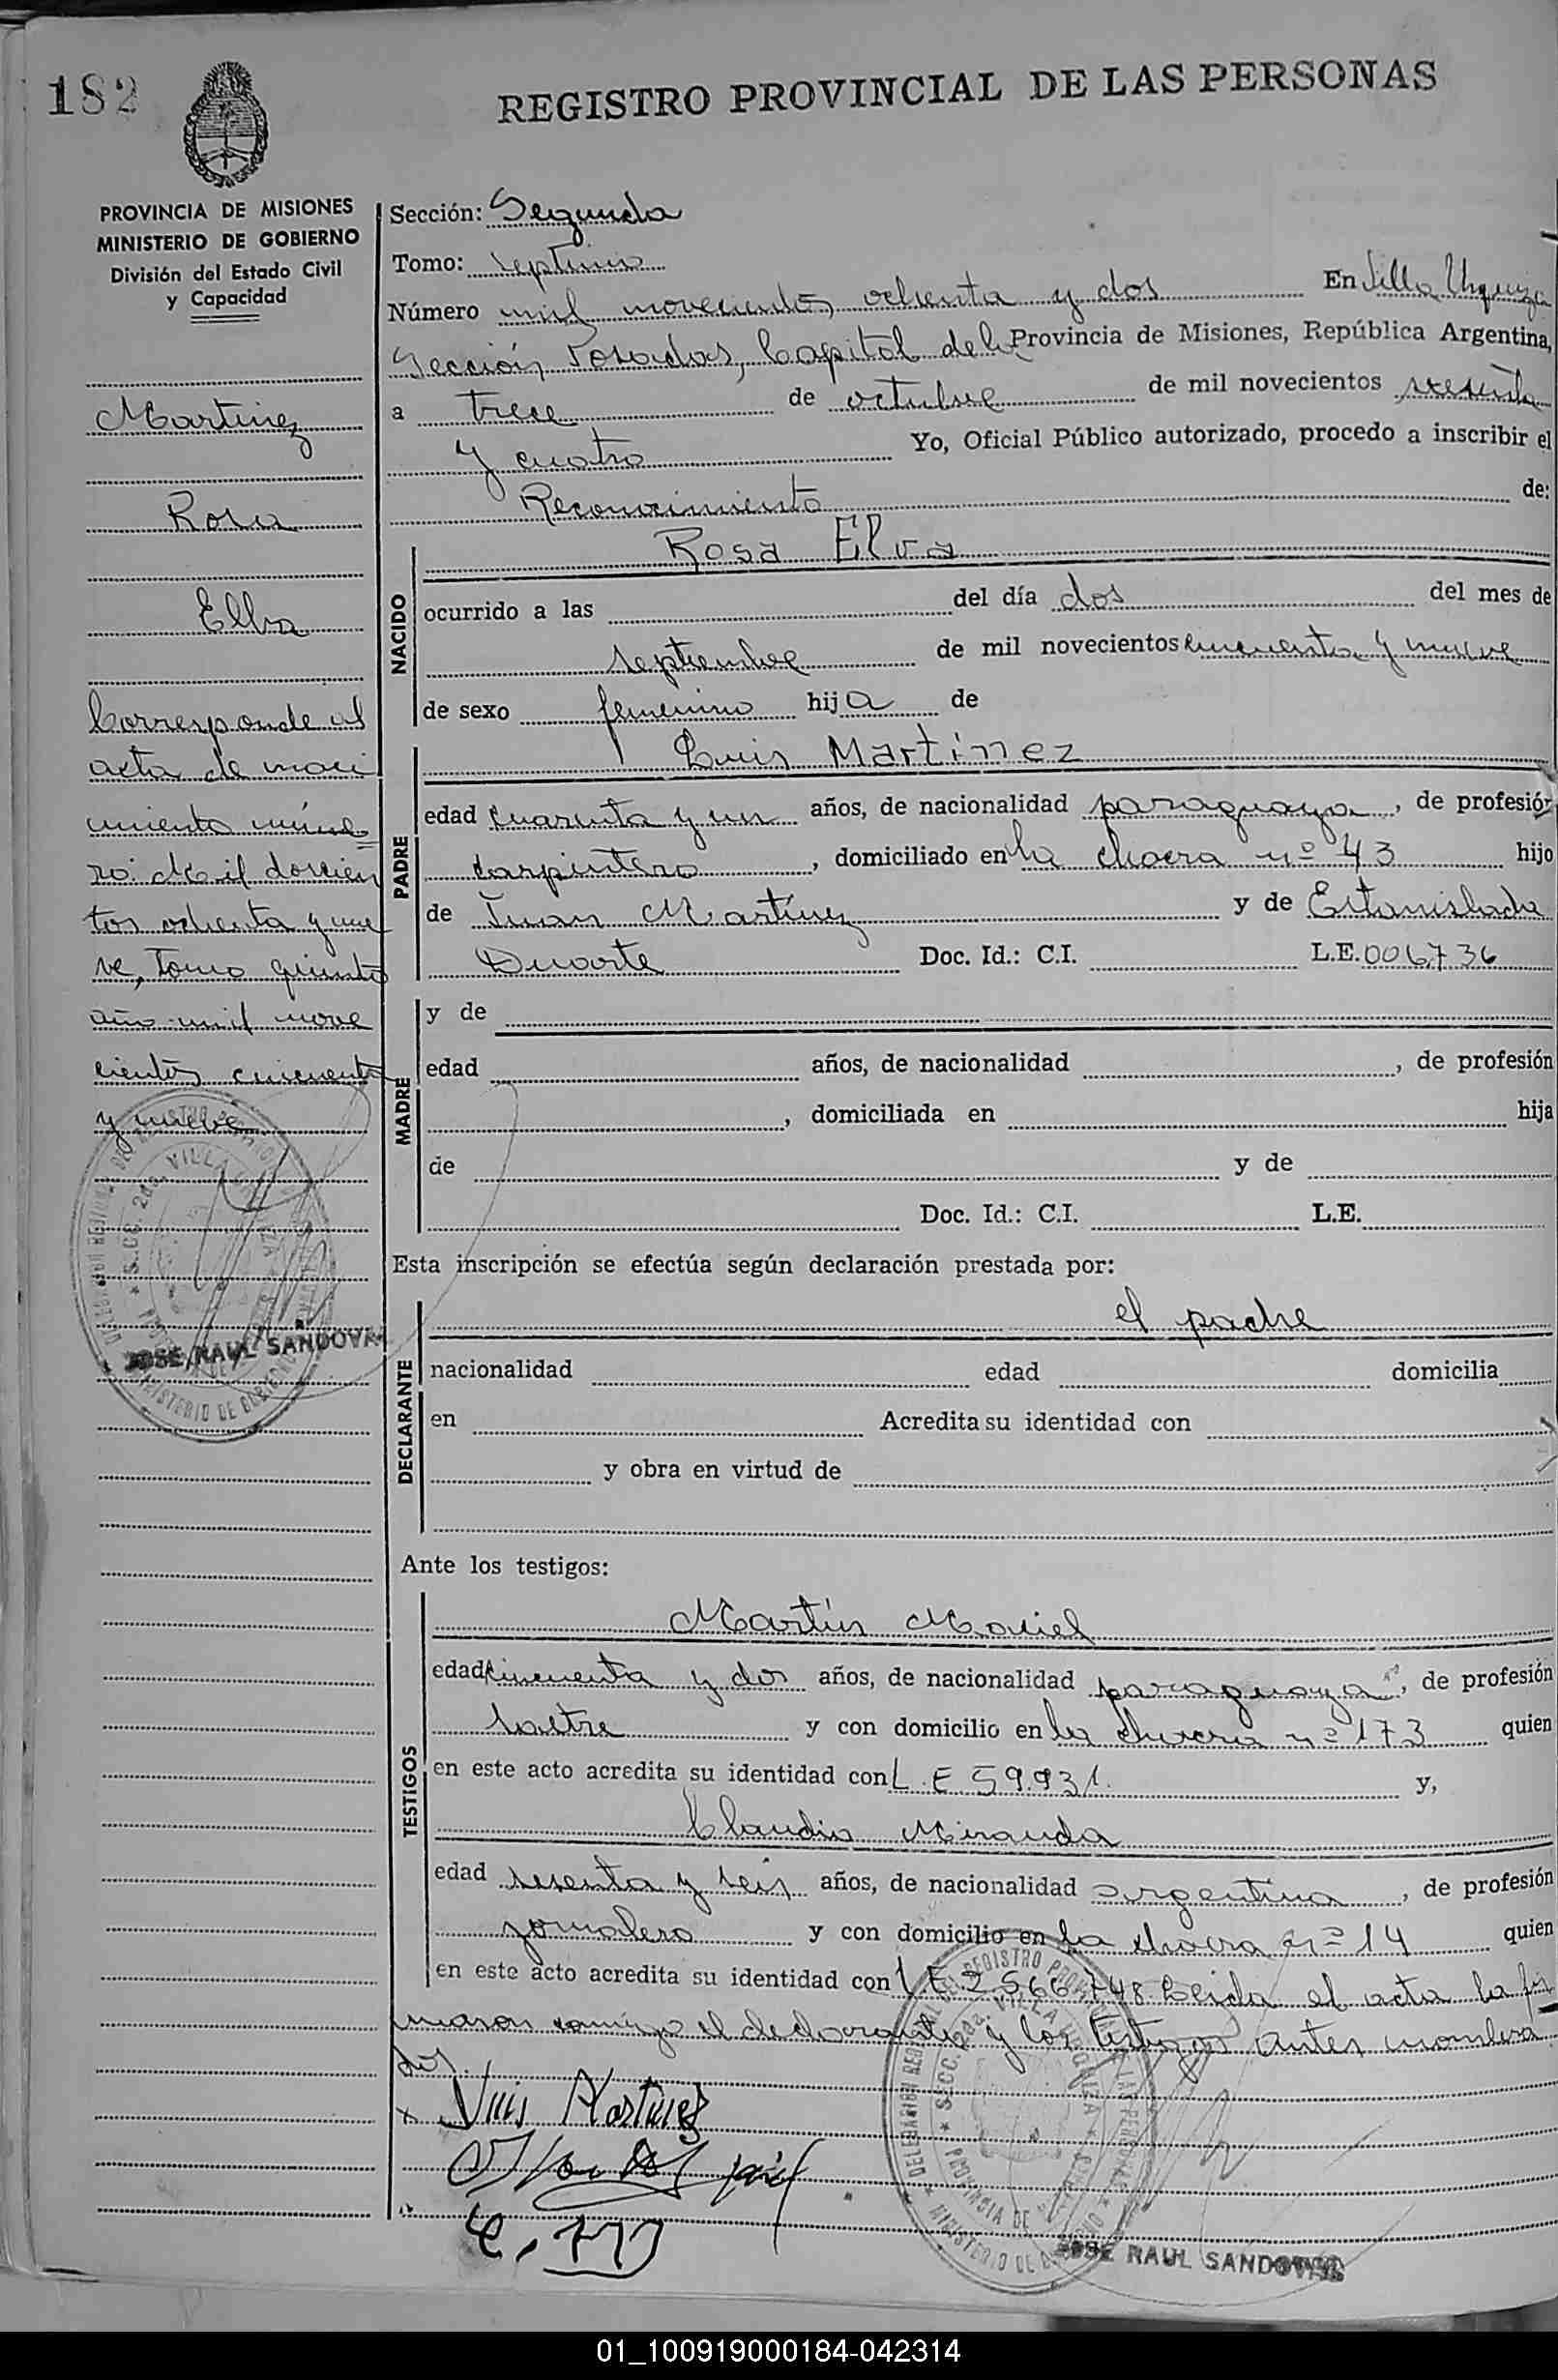 182
REGISTRO PROVINCIAL DE LAS PERSONAS
PROVINCIA DE MISIONES
MINISTERIO DE GOBIERNO
División del Estado Civil
y Capacidad
Martinez
Rosa
Elba
Corresponde al
acta de naci
miento núme
ro: Mil doscien
tos ochenta y nue
ve, Tomo quinto
año mil nove
cientos cincuenta
y nueve
JOSE RAUL SANDOVAL
Sección: Segunda
Tomo: septimo
Número mil novecientos ochenta y dos En Villa Urquiza
Sección Posadas, Capital de la Provincia de Misiones, República Argentina,
a trece de octubre de mil novecientos sesenta
y cuatro Yo, Oficial Público autorizado, procedo a inscribir el
Reconocimiento de:
NACIDO
Rosa Elva
ocurrido a las del día dos del mes de
septiembre de mil novecientos cincuenta y nueve
de sexo femenino hija de
PADRE
Luis Martínez
edad cuarenta y un años, de nacionalidad paraguaya, de profesión
carpintero, domiciliado en la chacra nº 43 hijo
de Juan Martínez y de Estanislada
Duarte Doc. Id.: C.I. L.E. 006736
MADRE
y de
edad años, de nacionalidad , de profesión
, domiciliada en hija
de y de
Doc. Id.: C.I. L.E.
Esta inscripción se efectúa según declaración prestada por:
DECLARANTE
el padre
nacionalidad edad domicilia
en Acredita su identidad con
y obra en virtud de
Ante los testigos:
TESTIGOS
Martín Maciel
edad cincuenta y dos años, de nacionalidad paraguaya, de profesión
sastre y con domicilio en la chacra nº 173 quien
en este acto acredita su identidad con L.E 59.931. y,
Claudio Miranda
edad sesenta y seis años, de nacionalidad argentina, de profesión
jornalero y con domicilio en la chacra nº 14 quien
en este acto acredita su identidad con L.E.2.566.748. Leida el acta la fir
maron conmigo el declarante y los testigos antes nombra
dos.
x Luis Martinez
JOSE RAUL SANDOVAL
01_100919000184-042314